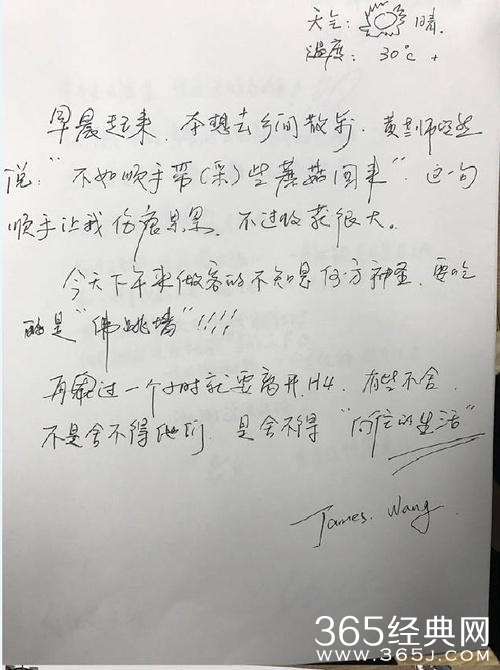 天气: 晴.
温度: 30°C +
早晨起来, 本想去乡间散步, 黄老师突然
说:“不如顺手带(采)些蘑菇回来”. 这一句
顺手让我伤痕累累, 不过收获很大。
今天下午来做客的不知是何方神圣, 要吃
的是“佛跳墙”!!!!
再过一个小时就要离开.H4. 有些不舍.
不是舍不得他们, 是舍不得“向往的生活”
James. Wang.
365经典网
WWW.365J.COM